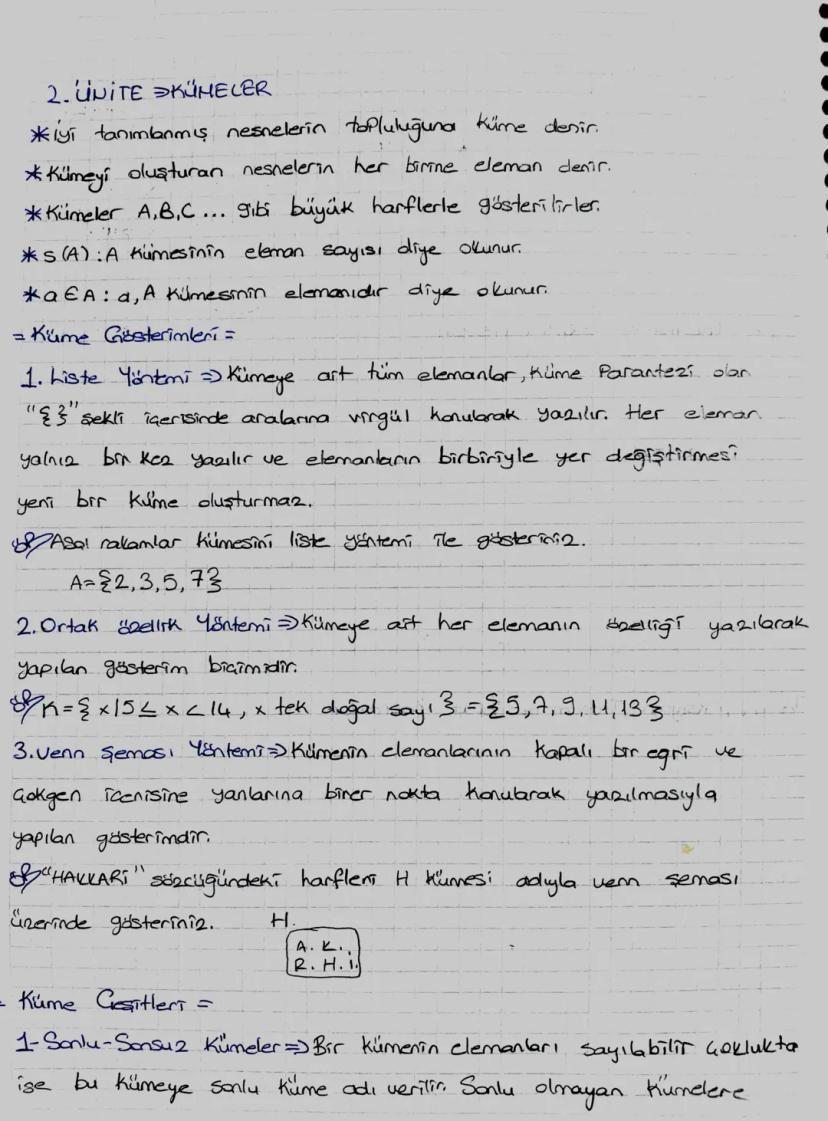 2. ÜNİTE ⇒ KÜMELER
* İyi tanımlanmış nesnelerin topluluğuna küme denir.
* Kümeyi oluşturan nesnelerin her birine eleman denir.
* Kümeler A,B,C ... gibi büyük harflerle gösterilirler.
* s(A) : A kümesinin eleman sayısı diye okunur.
* a ∈ A : a, A kümesinin elemanıdır diye okunur.
= Küme Gösterimleri =
1. Liste Yöntmi ⇒ Kümeye ait tüm elemanlar, küme parantezi olan
"{}" şekli içerisinde aralarına virgül konularak yazılır. Her eleman
yalnız bir kez yazılır ve elemanların birbiriyle yer değiştirmesi
yeni bir küme oluşturmaz.
Asal rakamlar kümesini liste yöntemi ile gösteriniz.
A={2,3,5,7}
2. Ortak özellik Yöntemi ⇒ Kümeye ait her elemanın özelliği yazılarak
yapılan gösterim biçimidir.
K={ x | 5 ≤ x < 14, x tek doğal sayı } = {5, 7, 9, 11, 13}
3. Venn Şeması Yöntemi ⇒ Kümenin elemanlarının kapalı bir eğri ve
çokgen içerisine yanlarına birer nokta konularak yazılmasıyla
yapılan gösterimdir.
"HAKKARİ" sözcüğündeki harfleri H kümesi adıyla venn şeması
üzerinde gösteriniz. H.
A. K.
R. H. İ.
= Küme Çeşitleri =
1-Sonlu-Sonsuz Kümeler ⇒ Bir kümenin elemanları sayılabilir çoklukta
ise bu kümeye sonlu küme adı verilir. Sonlu olmayan kümelere